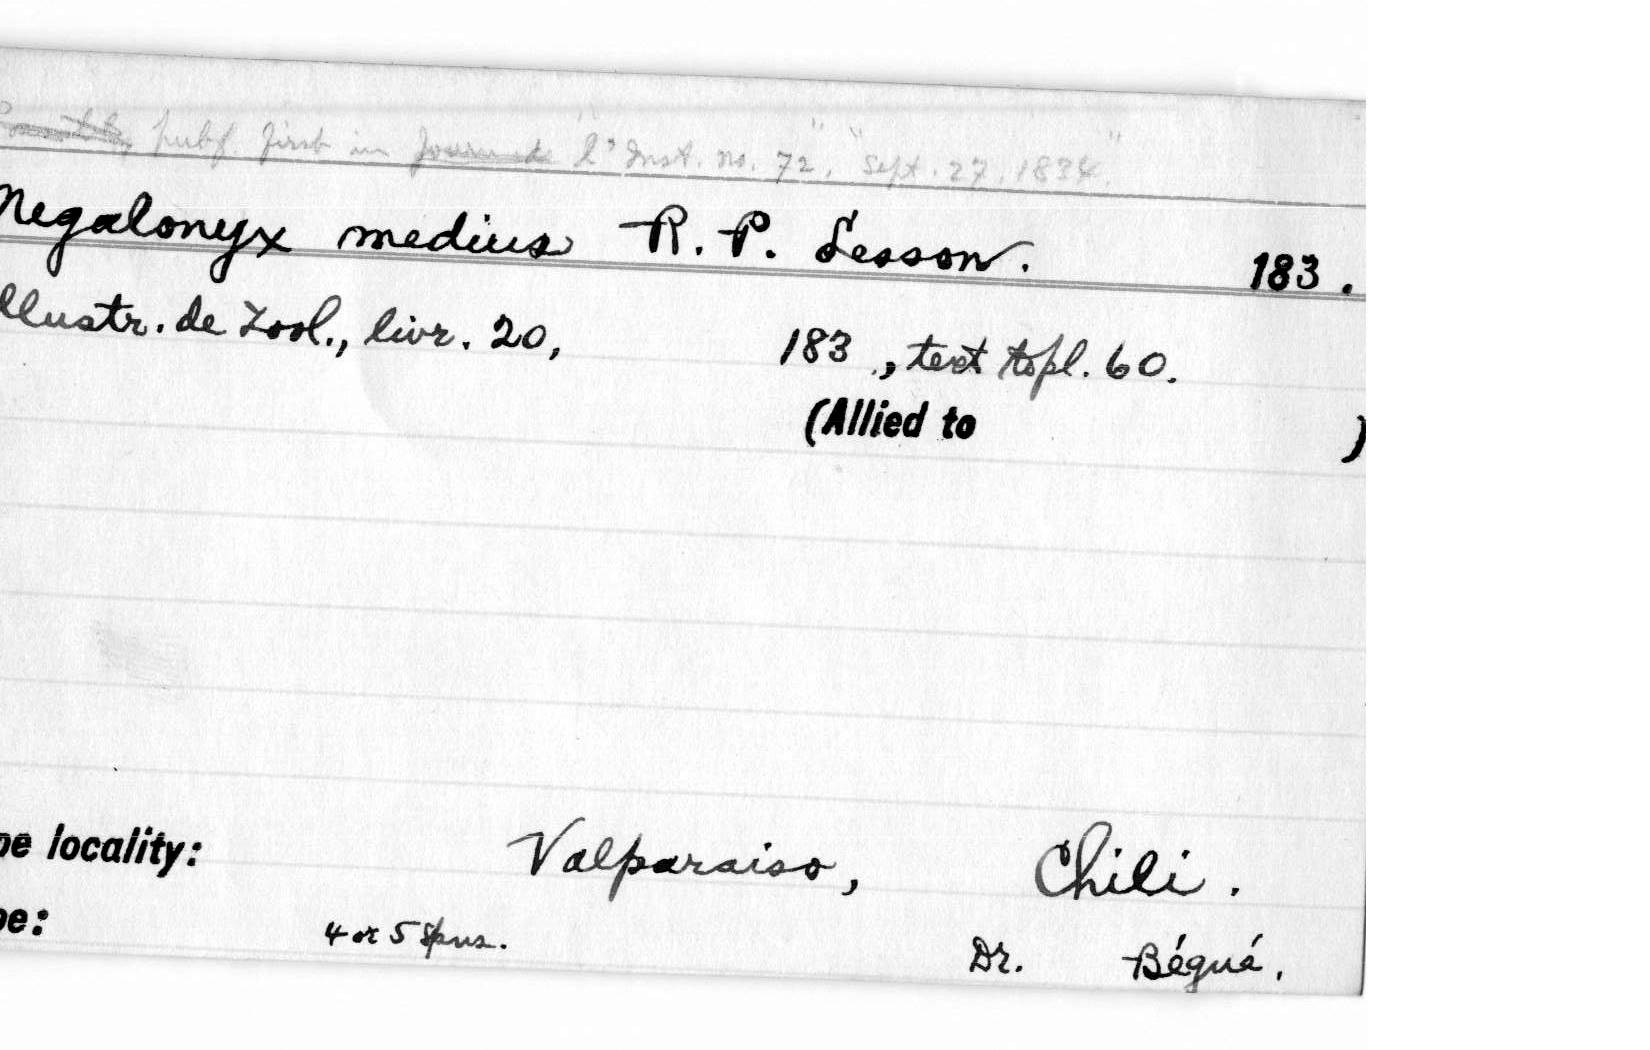 publ. first in Journ. de "l'Inst. no. 72", "Sept. 27, 1834".
Megalonyx medius R. P. Lesson. 183 .
Illustr. de Zool., livr. 20, 183 , text to pl. 60.
(Allied to )
pe locality: Valparaiso, Chili.
pe: 4 or 5 spns. Dr. Bégué.